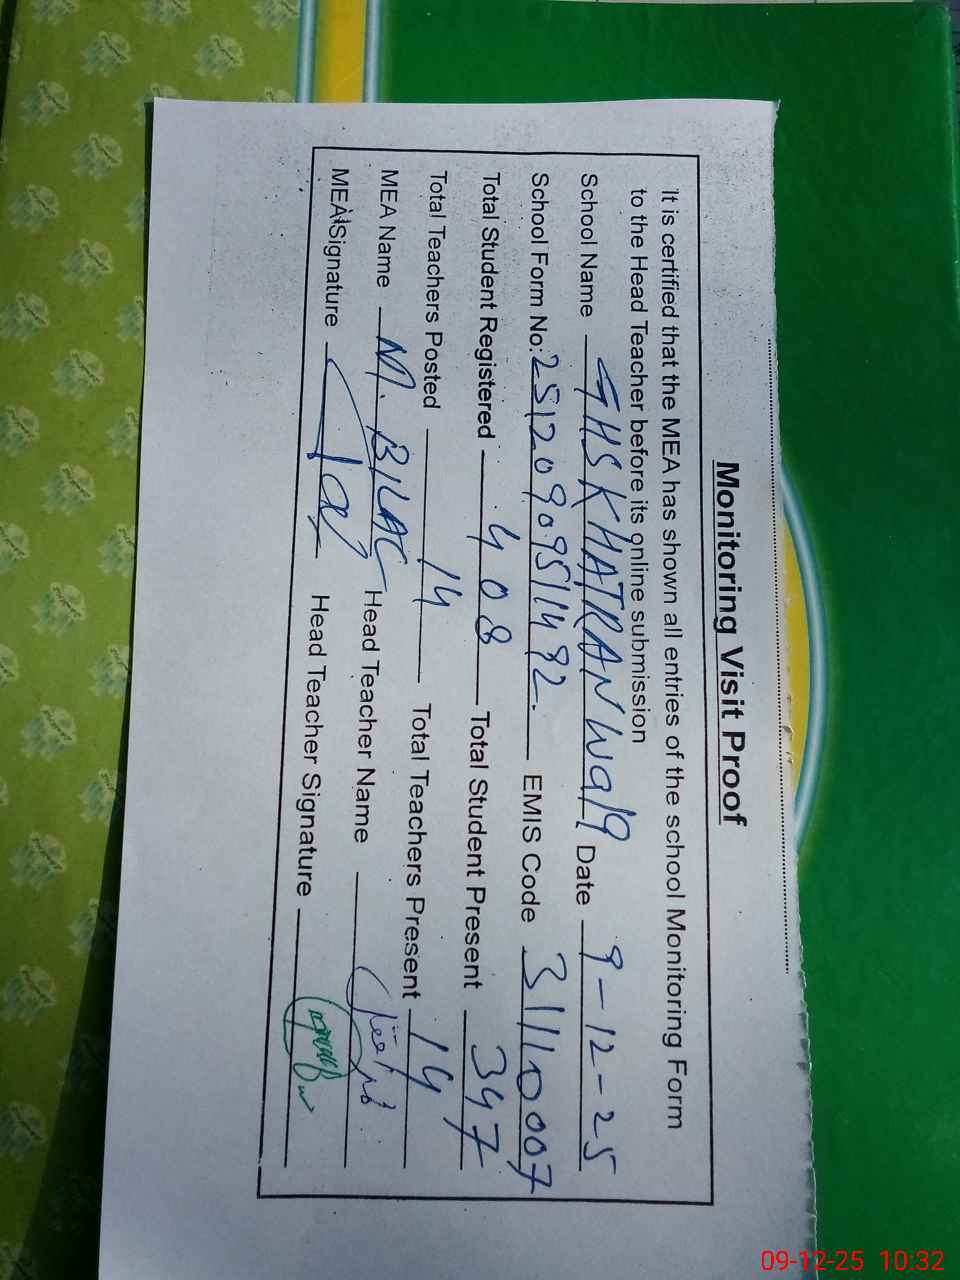 Monitoring Visit Proof
It is certified that the MEA has shown all entries of the school Monitoring Form
to the Head Teacher before its online submission
School Name GHS KHATRANWala Date 9-12-25
School Form No: 2512090951492 EMIS Code 31110007
Total Student Registered 408 Total Student Present 347
Total Teachers Posted 14 Total Teachers Present 14
MEA Name M. BILAL Head Teacher Name
MEA Signature Head Teacher Signature
09-12-25 10:32